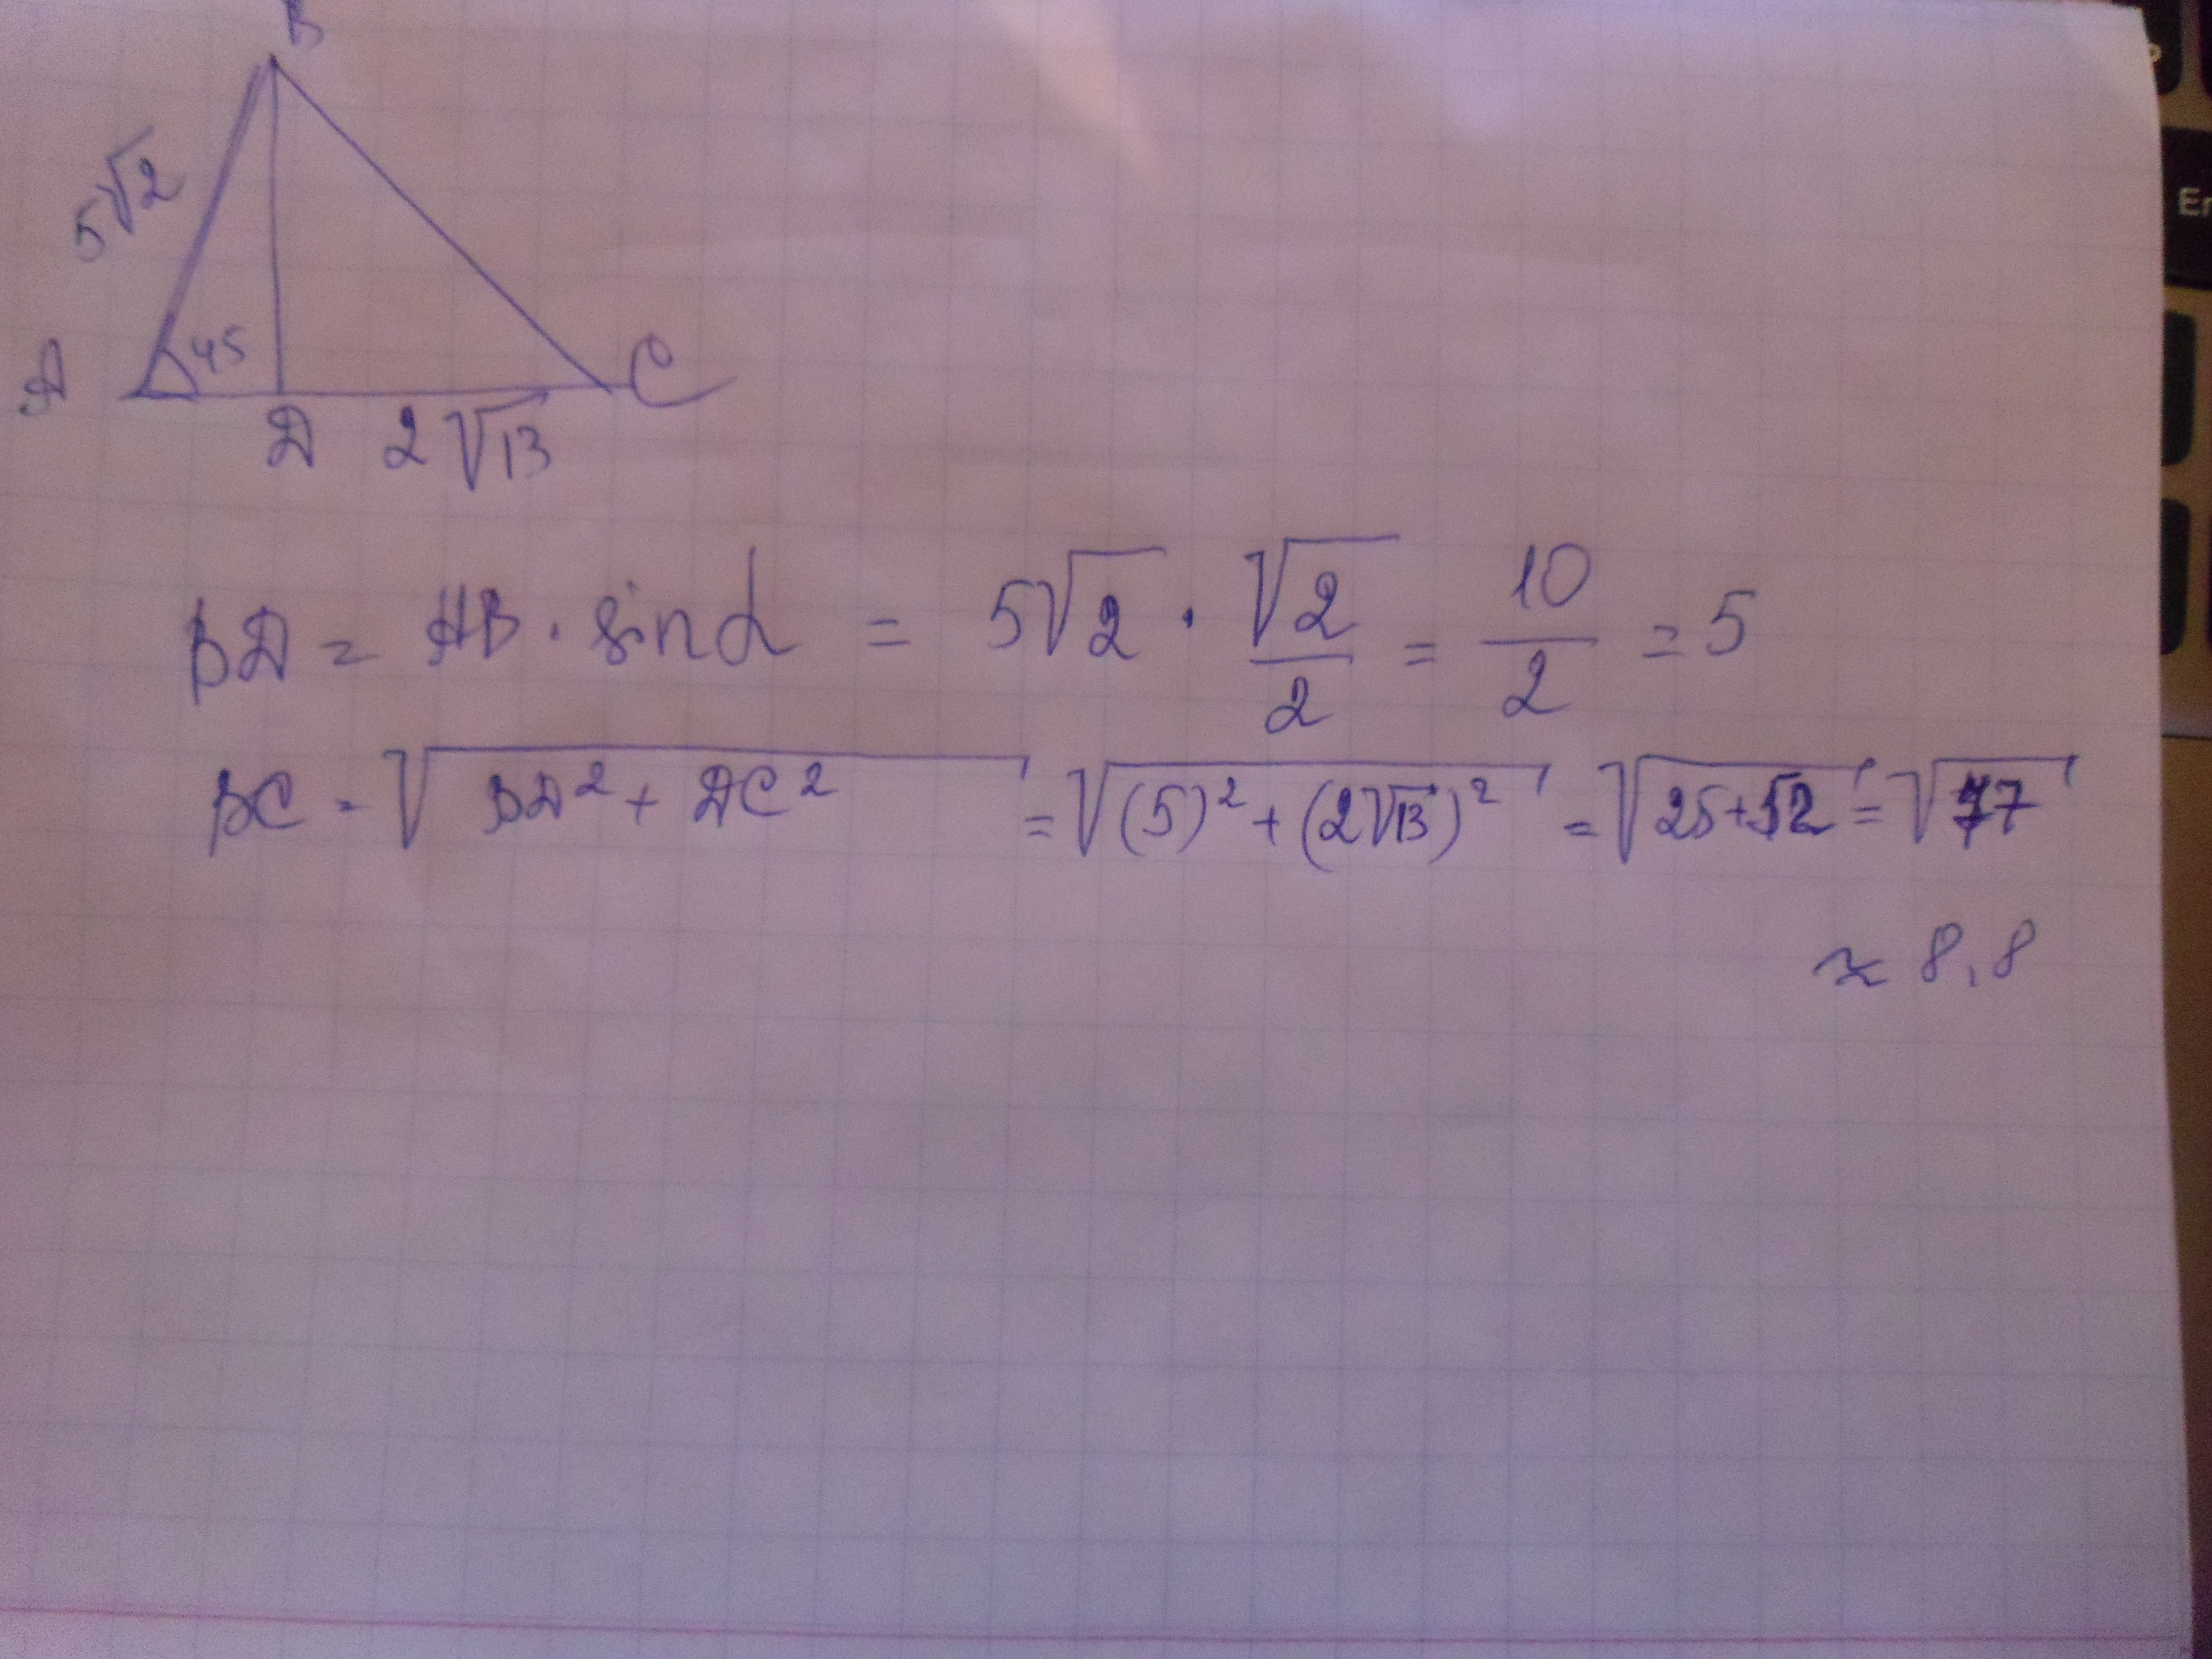 B
5√2
45
A
C
D 2√13
BD = AB · sin α = 5√2 · √2/2 = 10/2 = 5
BC = √(BD² + DC²) = √((5)² + (2√13)²) = √(25+52) = √77
≈ 8,8